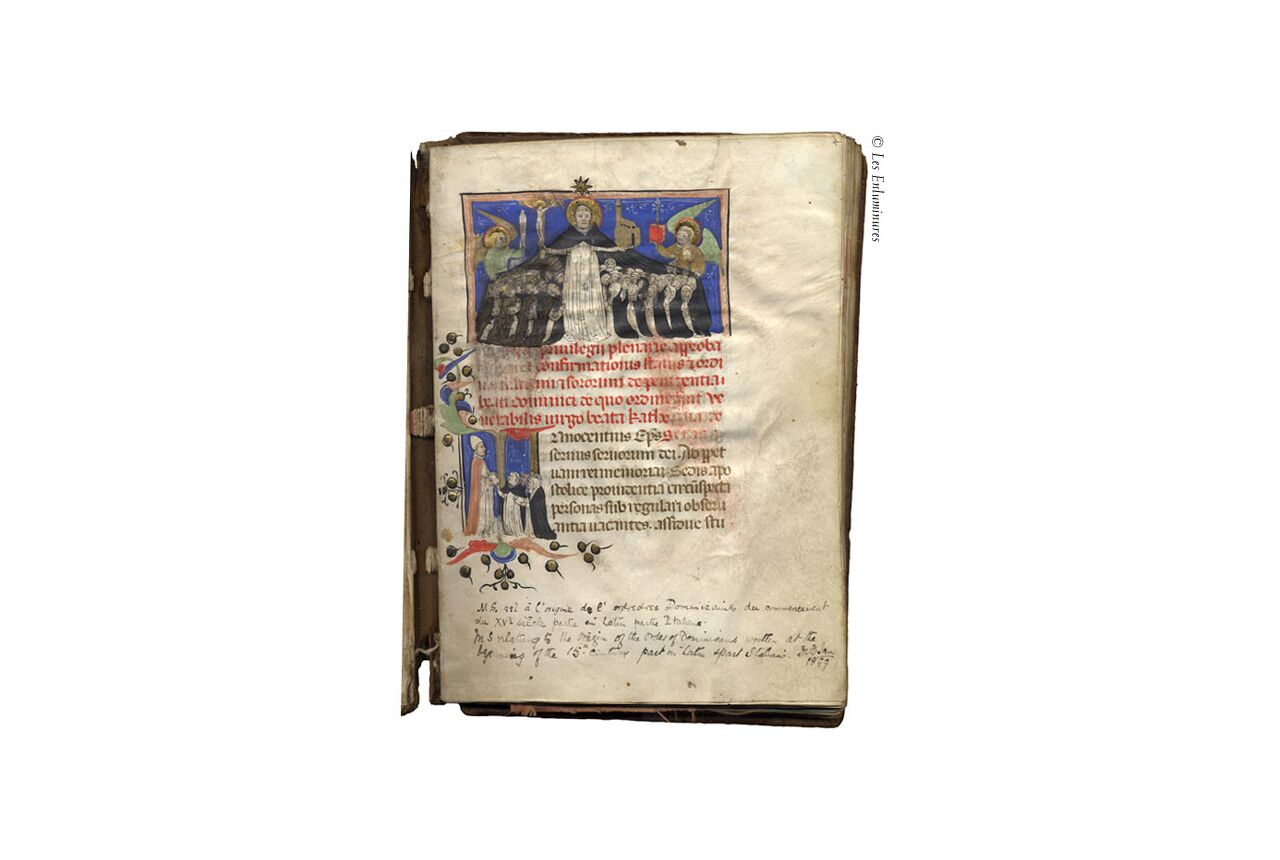 privilegii plenarie approba
confirmationis status & ordi
& sororum de penitentia
beati dominici de quo ordine
verabilis virgo beata Kath
Innocentius Eps
servus servorum dei. Ad ppet
uam rei memoriam. Sedis apo
stolice providentia circūspecta
personas sub regulari observ
antia vacantes. assidue stu
MS. rel à l'origine de l' ordredres Dominicains du commencement
du XVe siècle partie en Latin partie Italiane.
MS relating to the Origin of the Order of Dominicans written at the
beginning of the 15th Century part in Latin & part Italian.
© Les Enluminures